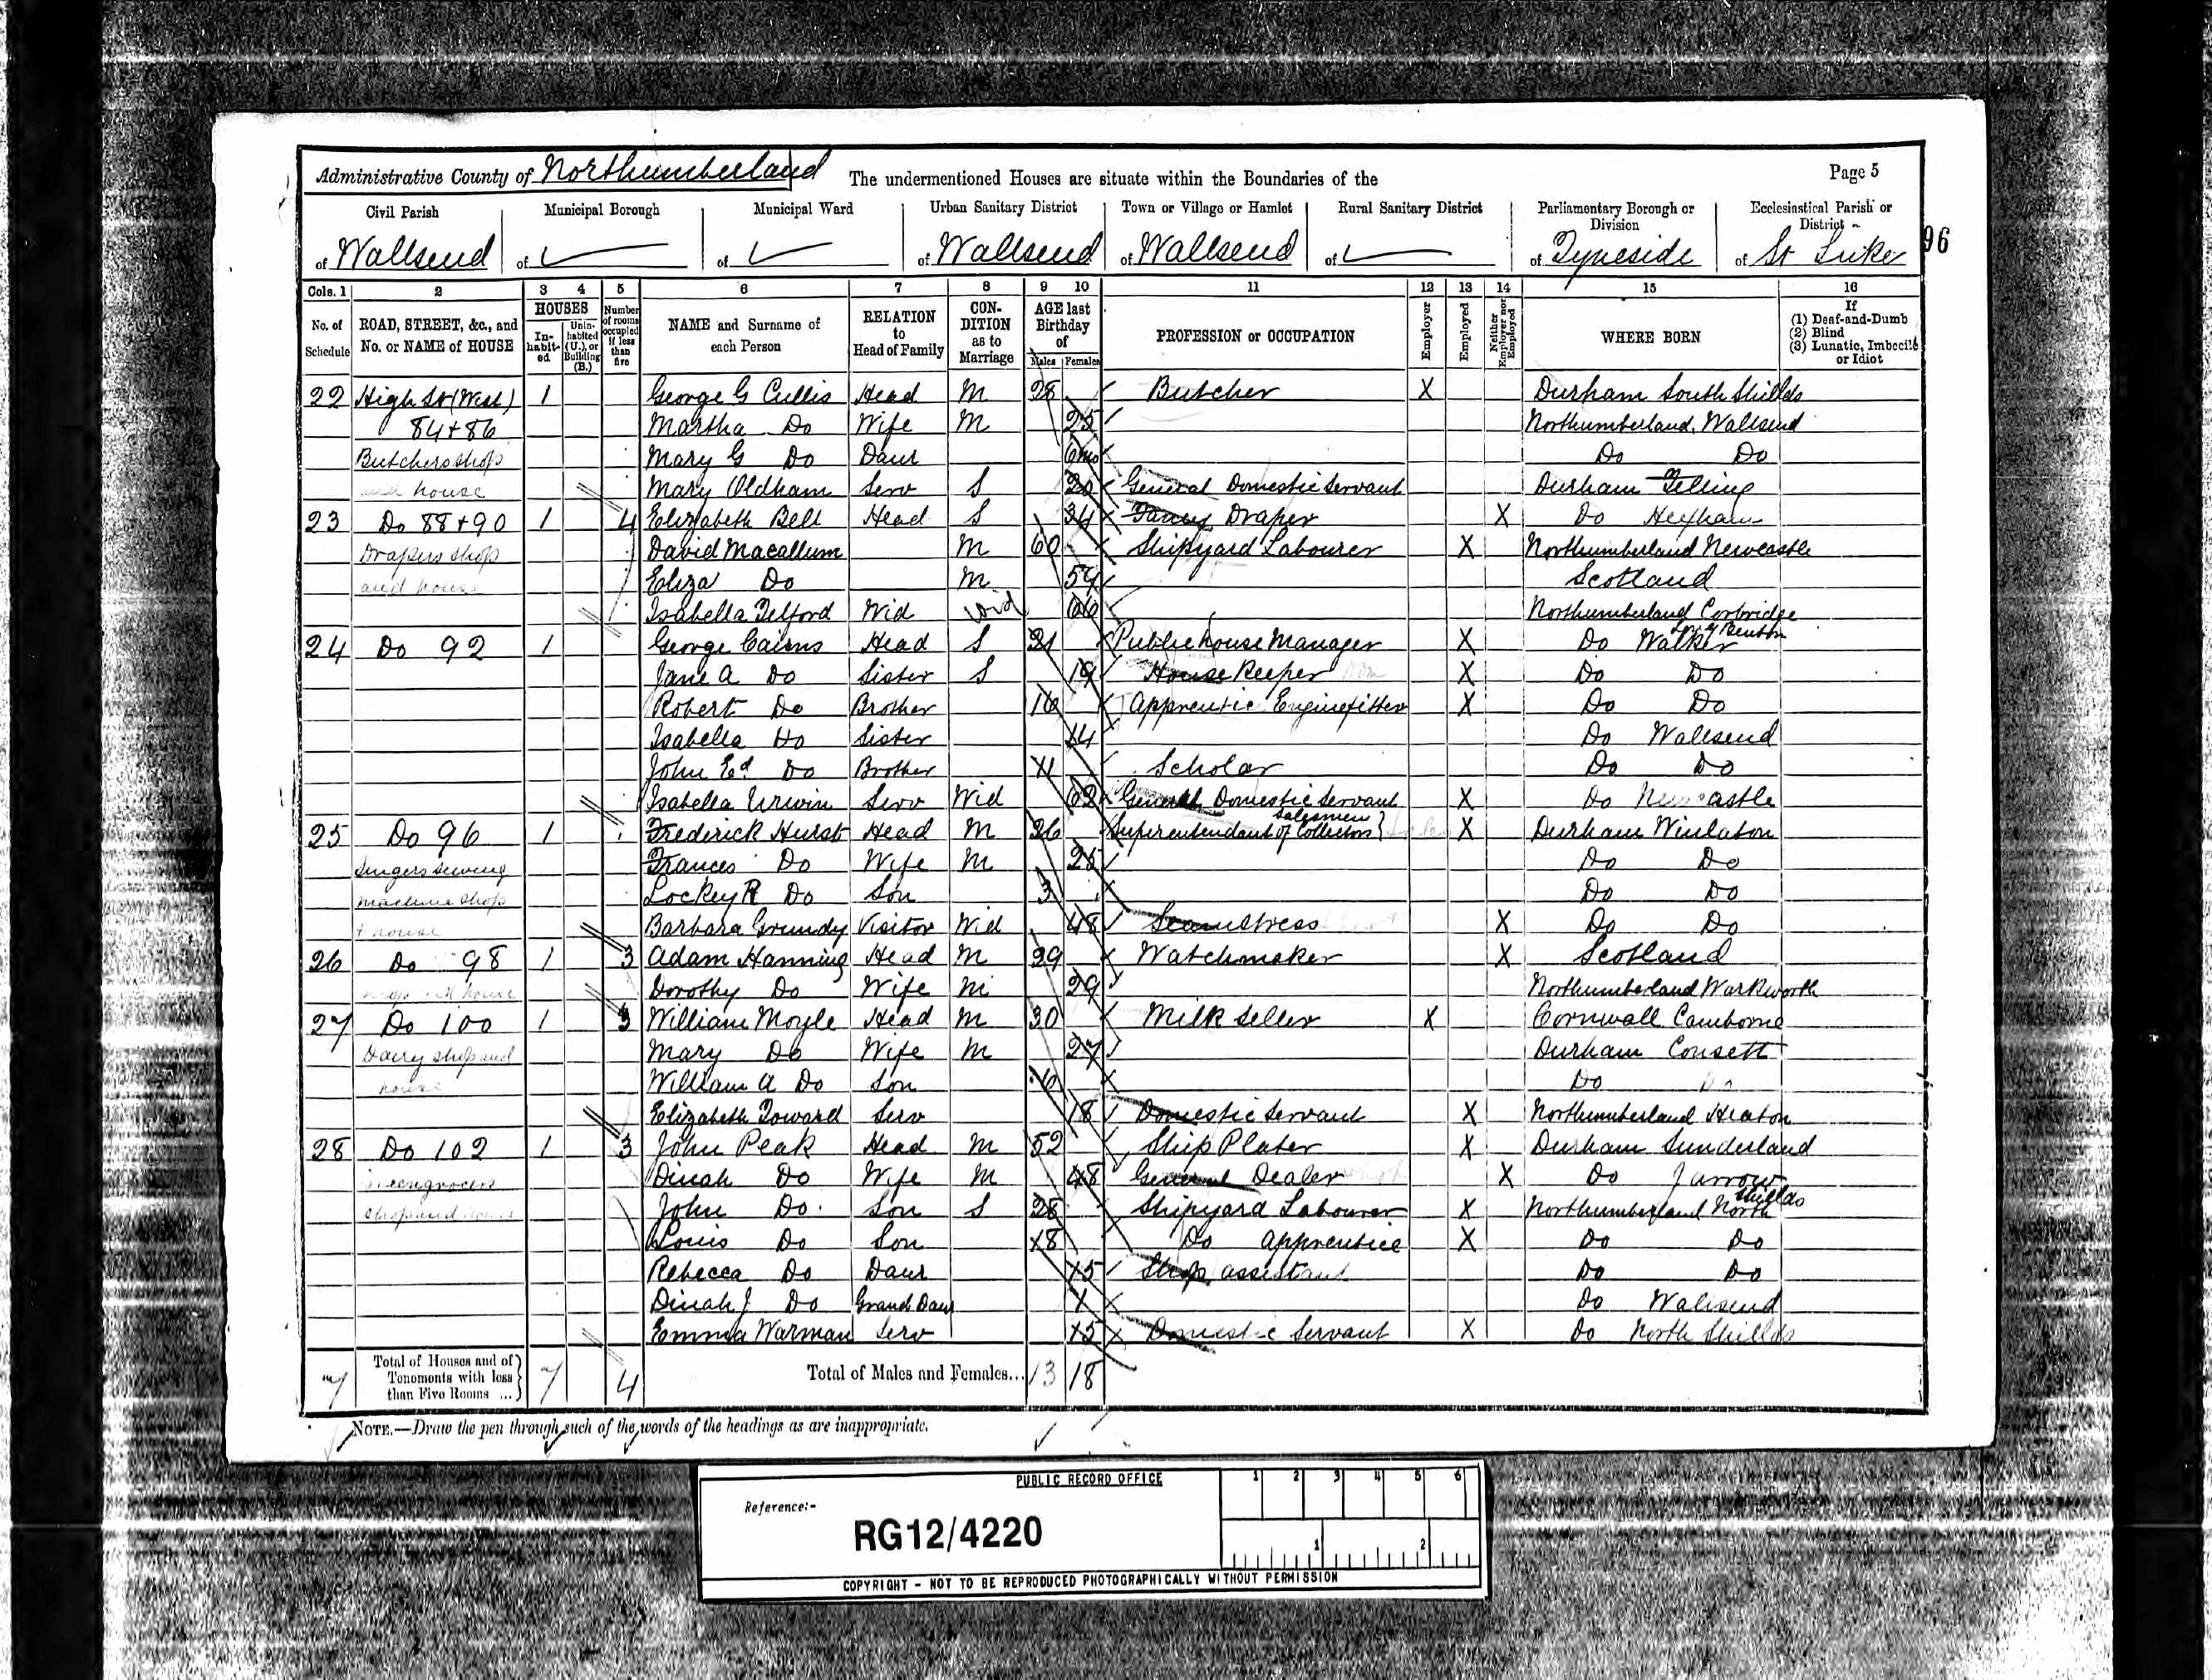 Administrative County of Northumberland The undermentioned Houses are situate within the Boundaries of the Page 5
Civil Parish Municipal Borough Municipal Ward Urban Sanitary District Town or Village or Hamlet Rural Sanitary District Parliamentary Borough or Division Ecclesiastical Parish or District
of Wallsend of of of Wallsend of Wallsend of of Tyneside of St Luke
96
Cols. 1 2 3 4 5 6 7 8 9 10 11 12 13 14 15 16
No. of Schedule ROAD, STREET, &c., and No. or NAME of HOUSE HOUSES Inhabited Uninhabited (U.), or Building (B.) Number of rooms occupied if less than five NAME and Surname of each Person RELATION to Head of Family CONDITION as to Marriage AGE last Birthday of Males Females PROFESSION or OCCUPATION Employer Employed Neither Employer nor Employed WHERE BORN If (1) Deaf-and-Dumb (2) Blind (3) Lunatic, Imbecile or Idiot
22 High St (West) 1 George G Cullis Head M 28 Butcher X Durham South Shields
84+86 Martha Do Wife M 25 Northumberland, Wallsend
Butchers shop Mary G Do Daur 6mo Do Do
and house Mary Oldham Serv S 20 General Domestic Servant Durham Felling
23 Do 88+90 1 4 Elizabeth Bell Head S 34 Fancy Draper X Do
Drapers shop David Macallum M 60 Shipyard Labourer X Northumberland Newcastle
and house Eliza Do M 54 Scotland
Isabella Telford Wid Wid 66 Northumberland Corbridge
24 Do 92 1 George Cairns Head S 21 Public house Manager X Do Walker Benton
Jane A Do Sister S 19 House Keeper Dom X Do Do
Robert Do Brother 16 Apprentic Enginefitter X Do Do
Isabella Do Sister 14 Do Wallsend
John Ed Do Brother 11 Scholar Do Do
Isabella Urwin Serv Wid 62 General Domestic Servant X Do Newcastle
25 Do 96 1 Frederick Hurst Head M 26 Superentendant of Collectors salesmen X Durham Winlaton
Singers sewing Frances Do Wife M 25 Do Do
machine shop Lockey R Do Son 3 Do Do
+ house Barbara Grundy Visitor Wid 48 Seamstress X Do Do
26 Do 98 1 3 Adam Hanning Head M 29 Watchmaker X Scotland
house Dorothy Do Wife M 29 Northumberland Warkworth
27 Do 100 1 3 William Moyle Head M 30 Milk Seller X Cornwall Camborne
Dairy shop and Mary Do Wife M 27 Durham Consett
house William A Do Son 6 Do Do
Elizabeth Toward Serv 18 Domestic Servant X Northumberland Heaton
28 Do 102 1 3 John Peak Head M 52 Ship Plater X Durham Sunderland
Greengrocers Dinah Do Wife M 48 General Dealer X Do Jarrow
shop and house John Do Son S 28 Shipyard Labourer X Northumberland North Shields
Louis Do Son 18 Do apprentice X Do Do
Rebecca Do Daur 15 Shop assistant Do Do
Dinah J Do Grand Daur 1 Do Wallsend
Emma Warman Serv 15 Domestic Servant X Do North Shields
7 Total of Houses and of Tenements with less than Five Rooms ... 7 4 Total of Males and Females... 13 18
NOTE.—Draw the pen through such of the words of the headings as are inappropriate.
PUBLIC RECORD OFFICE 1 2 3 4 5 6
Reference:-
RG12/4220 1 2
COPYRIGHT - NOT TO BE REPRODUCED PHOTOGRAPHICALLY WITHOUT PERMISSION